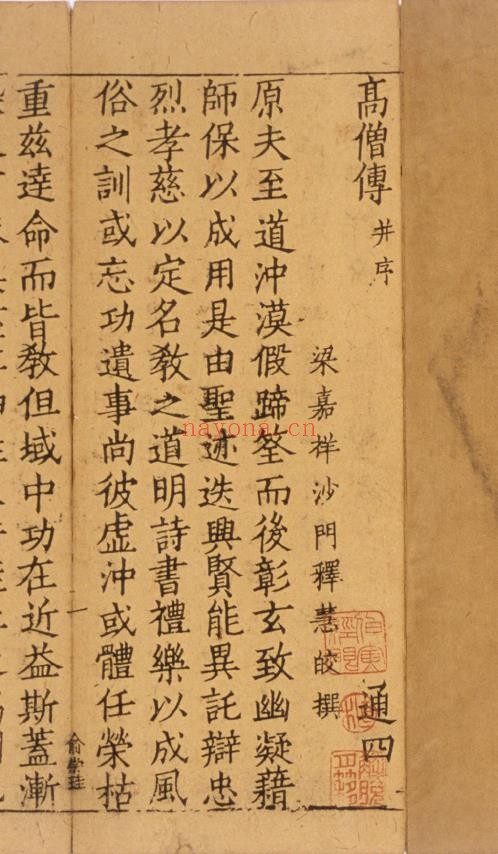 髙僧傳 并序 通四
梁嘉祥沙門釋慧皎撰
原夫至道沖漠假蹄筌而後彰玄致幽凝藉
師保以成用是由聖迹迭興賢能異託辯忠
烈孝慈以定名敎之道明詩書禮樂以成風
俗之訓或忘功遺事尚彼虛沖或體任榮枯
重茲達命而皆敎但域中功在近益斯蓋漸
nayona.cn